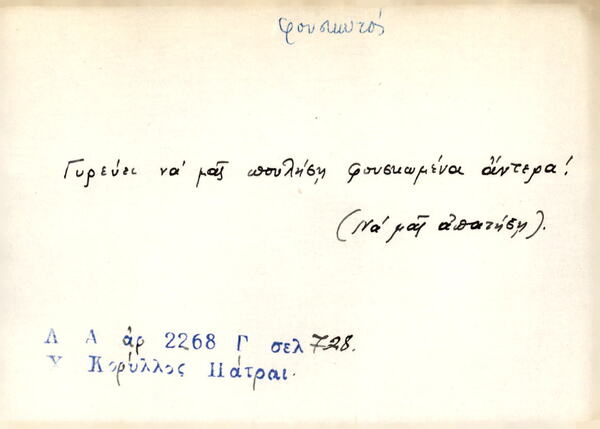 φουσκωτός
Γυρεύει νά μᾶς πουλήσῃ φουσκωμένα ἄντερα!
(Νά μᾶς ἀπατήσῃ).
Λ Α ἀρ 2268 Γ σελ 728.
Χ Κορύλλος Πάτραι.